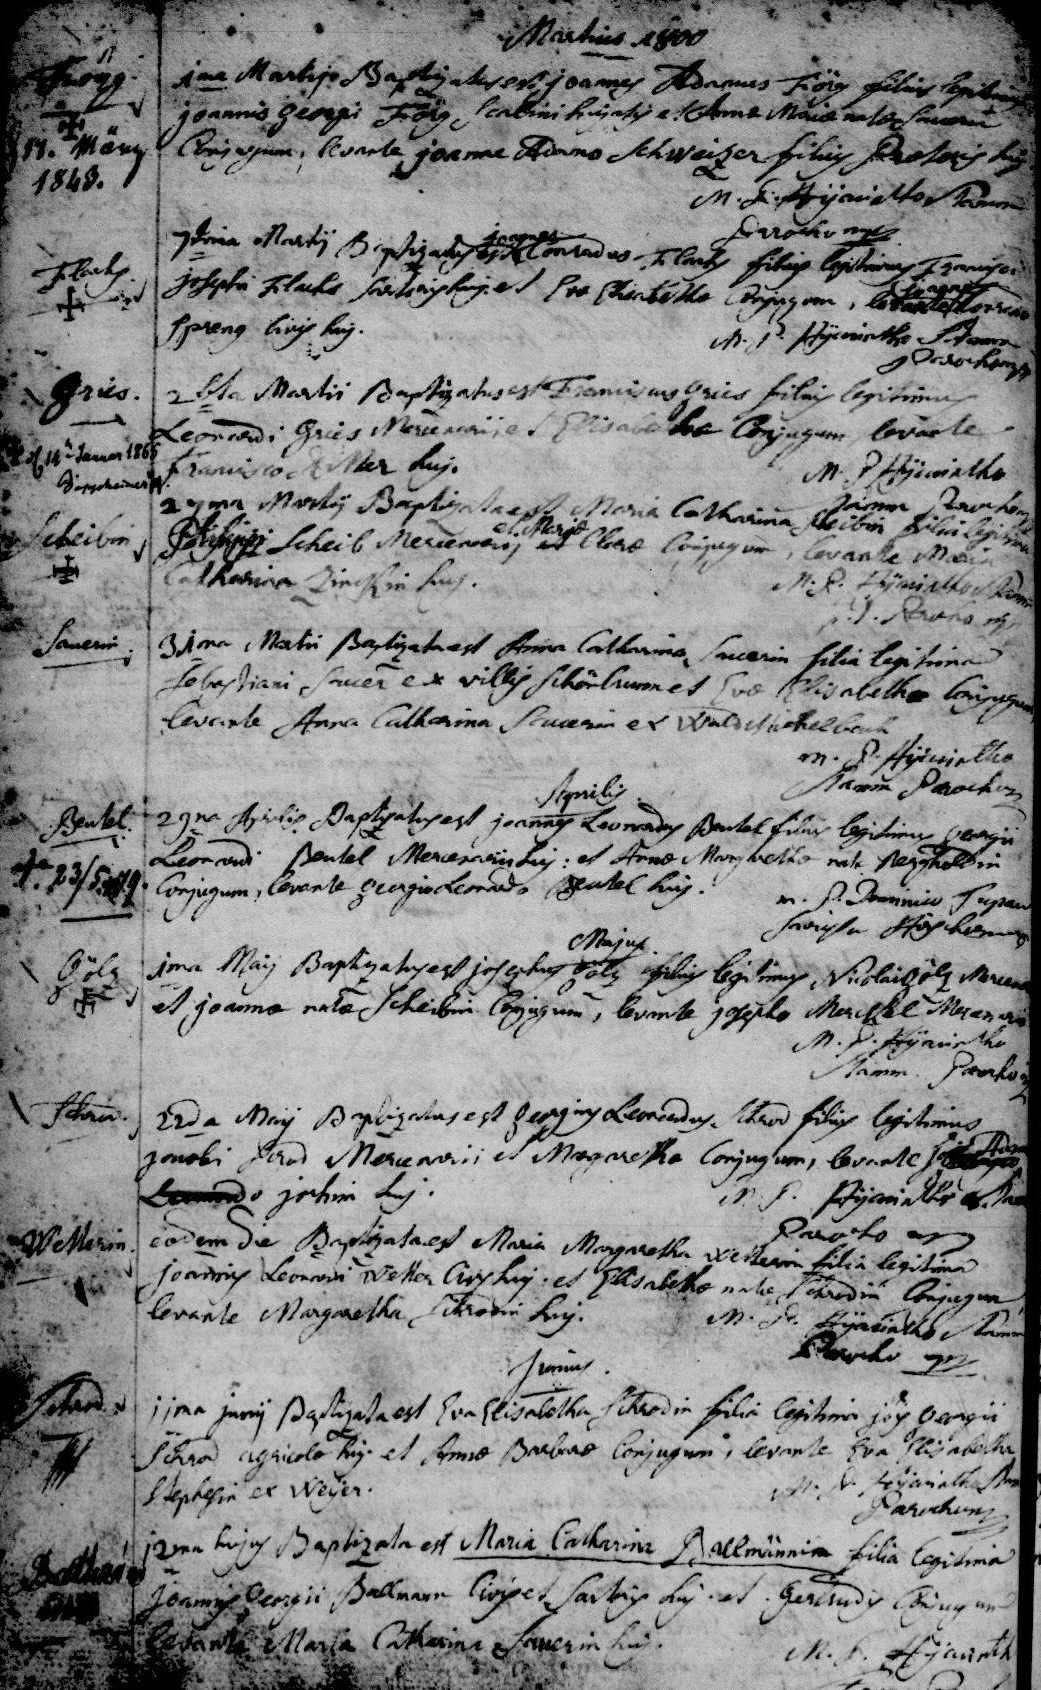 Martius 1800
Förg.
1ma Martij Baptizatus est joannes Adamus Förg filius legitimus
joannis georgi Förg Scabini hujatis et Annæ Mariæ natæ Sauerin
11. März
Conjugum, levante joanne Adamo Schweizer filius Prætoris huj.
1843.
M. P. Hÿacintho Stamm
Parocho mp
7tima Martij Baptizatus est joannes Conradus Flachs filius legitimus Francisci
Flachs
josephi Flachs Sartoris huj. et Evæ Elisabethæ Conjugum, levante joanne Conrado
Spreng Civis huj.
M. P. Hÿacintho Stamm
Parocho mp
Gries.
Martii Baptizatus est Franciscus Gries filius legitimus
Leonardi Gries Mercenarii, et Elisabethæ Conjugum levante
14t Januar 1865
Francisco Ritter huj.
M. P. Hÿacintho
Stamm Parocho mp
Scheibin
29na Martij Baptizata est Maria Catharina Scheibin filia legitima
Philippi Scheib Mercenarij et Mariæ Claræ Conjugum, levante Maria
Catharina huj.
M. P. Hÿacintho Stamm
Parocho mp
Sauerin.
31ma Martii Baptizata est Anna Catharina Sauerin filia legitima
Sebastiani Sauer ex villis Schönbrunn et Evæ Elisabethæ Conjugum
levante Anna Catharina Sauerin ex Waldmichelbach
m. P. Hÿacintho
Stamm Parocho mp
Aprilis.
Beutel.
29na Aprilis Baptizatus est joannes Leonardus Beutel filius legitimus georgii
Leonardi Beutel Mercenarii huj. et Annæ Margarethæ natæ
23/5
Conjugum, levante georgio Leonardo Beutel huj.
m. P. Dominico
Majus.
Gölz
1ma Maij Baptizatus est josephus Gölz filius legitimus Nicolai Gölz Mercenarii
et joannæ natæ Scheibin Conjugum, levante josepho Merckel Mercenario
M. P. Hÿacintho
Stamm Parocho mp
Schrod.
22da Maij Baptizatus est georgius Leonardus Schrod filius legitimus
jacobi Schrod Mercenarii et Margarethæ Conjugum, levante Adam
Leonardo jochim huj.
M. P. Hÿacintho Stamm
Parocho mp
Wetterin.
eodem Die Baptizata est Maria Margaretha Wetterin filia legitima
joannis Leonardi Wetter Civis huj. et Elisabethæ natæ Schrodin Conjugum
levante Margaretha Schrodin huj.
M. P. Hÿacintho Stamm
Parocho mp
Junius.
Schrod
11ma junij Baptizata est Eva Elisabetha Schrodin filia legitima jois georgii
Schrod agricolæ huj. et Annæ Barbaræ Conjugum, levante Eva Elisabetha
Stephgin ex Weÿer.
M. P. Hÿacintho Stamm
Parocho mp
12ma hujus Baptizata est Maria Catharina Ballmännin filia legitima
joannis georgii Ballmann Civis et Sartoris huj. et gertrudis Conjugum
levante Maria Catharina Sauerin huj.
M. P. Hÿacintho